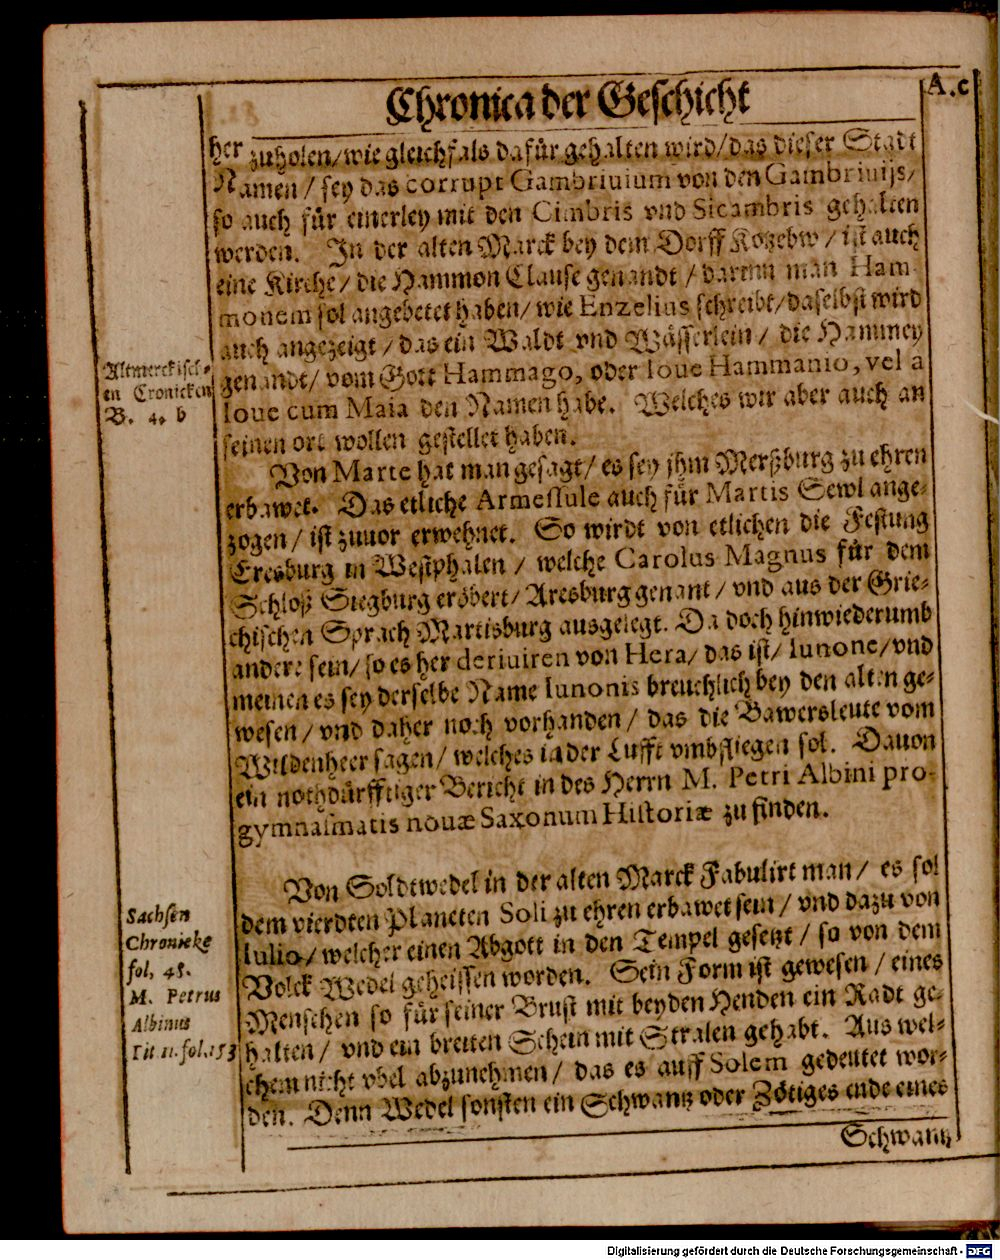 Chronica der Geschicht
A.c
her zuholen/wie gleichfals dafür gehalten wird/das dieser Stadt
Namen / sey das corrupt Gambriuium von den Gambriuijs/
so auch für einerley mit den Cimbris vnd Sicambris gehalten
werden. In der alten Marck bey dem Dorff Kozebw / ist auch
eine Kirche/ die Hammon Clause genandt / darinn man Ham-
monem sol angebetet haben/ wie Enzelius schreibt/daselbst wird
auch angezeigt / das ein Waldt vnd Wässerlein / die Hammey
genandt/ vom Gott Hammago, oder Ioue Hammanio, vel a
Ioue cum Maia den Namen habe. Welches wir aber auch an
seinen ort wollen gestellet haben.
Altmerckisch-
en Cronicken
B. 4. b
Von Marte hat man gesagt/ es sey jhm Merßburg zu ehren
erbawet. Das etliche Armessule auch für Martis Sewl ange-
zogen / ist zuuor erwehnet. So wirdt von etlichen die Festung
Eresburg in Westphalen / welche Carolus Magnus für dem
Schloß Siegburg erobert/ Aresburg genant / vnd aus der Grie-
chischen Sprach Martisburg ausgelegt. Da doch hinwiederumb
andere sein/ so es her deriuiren von Hera/ das ist/ Iunone/vnd
meinen es sey derselbe Name Iunonis breuchlich bey den alten ge-
wesen / vnd daher noch vorhanden / das die Bawersleute vom
Wildenheer sagen/ welches in der Lufft vmbfliegen sol. Dauon
ein nothdürfftiger Bericht in des Herrn M. Petri Albini pro-
gymnasmatis nouæ Saxonum Historiæ zu finden.
Von Soldtwedel in der alten Marck Fabulirt man/ es sol
dem vierdten Planeten Soli zu ehren erbawet sein / vnd dazu von
Iulio/ welcher einen Abgott in den Tempel gesetzt / so von dem
Volck Wedel geheissen worden. Sein Form ist gewesen / eines
Menschen so für seiner Brust mit beyden Henden ein Radt ge-
halten / vnd ein breiten Schein mit Stralen gehabt. Aus wel-
chem nicht vbel abzunehmen/ das es auff Solem gedeutet wor-
den. Denn Wedel sonsten ein Schwantz oder Zötiges ende eines
Sachsen
Chronicke
fol. 48.
M. Petrus
Albinus
Tit 11. fol. 153
Schwantz
Digitalisierung gefördert durch die Deutsche Forschungsgemeinschaft - DFG